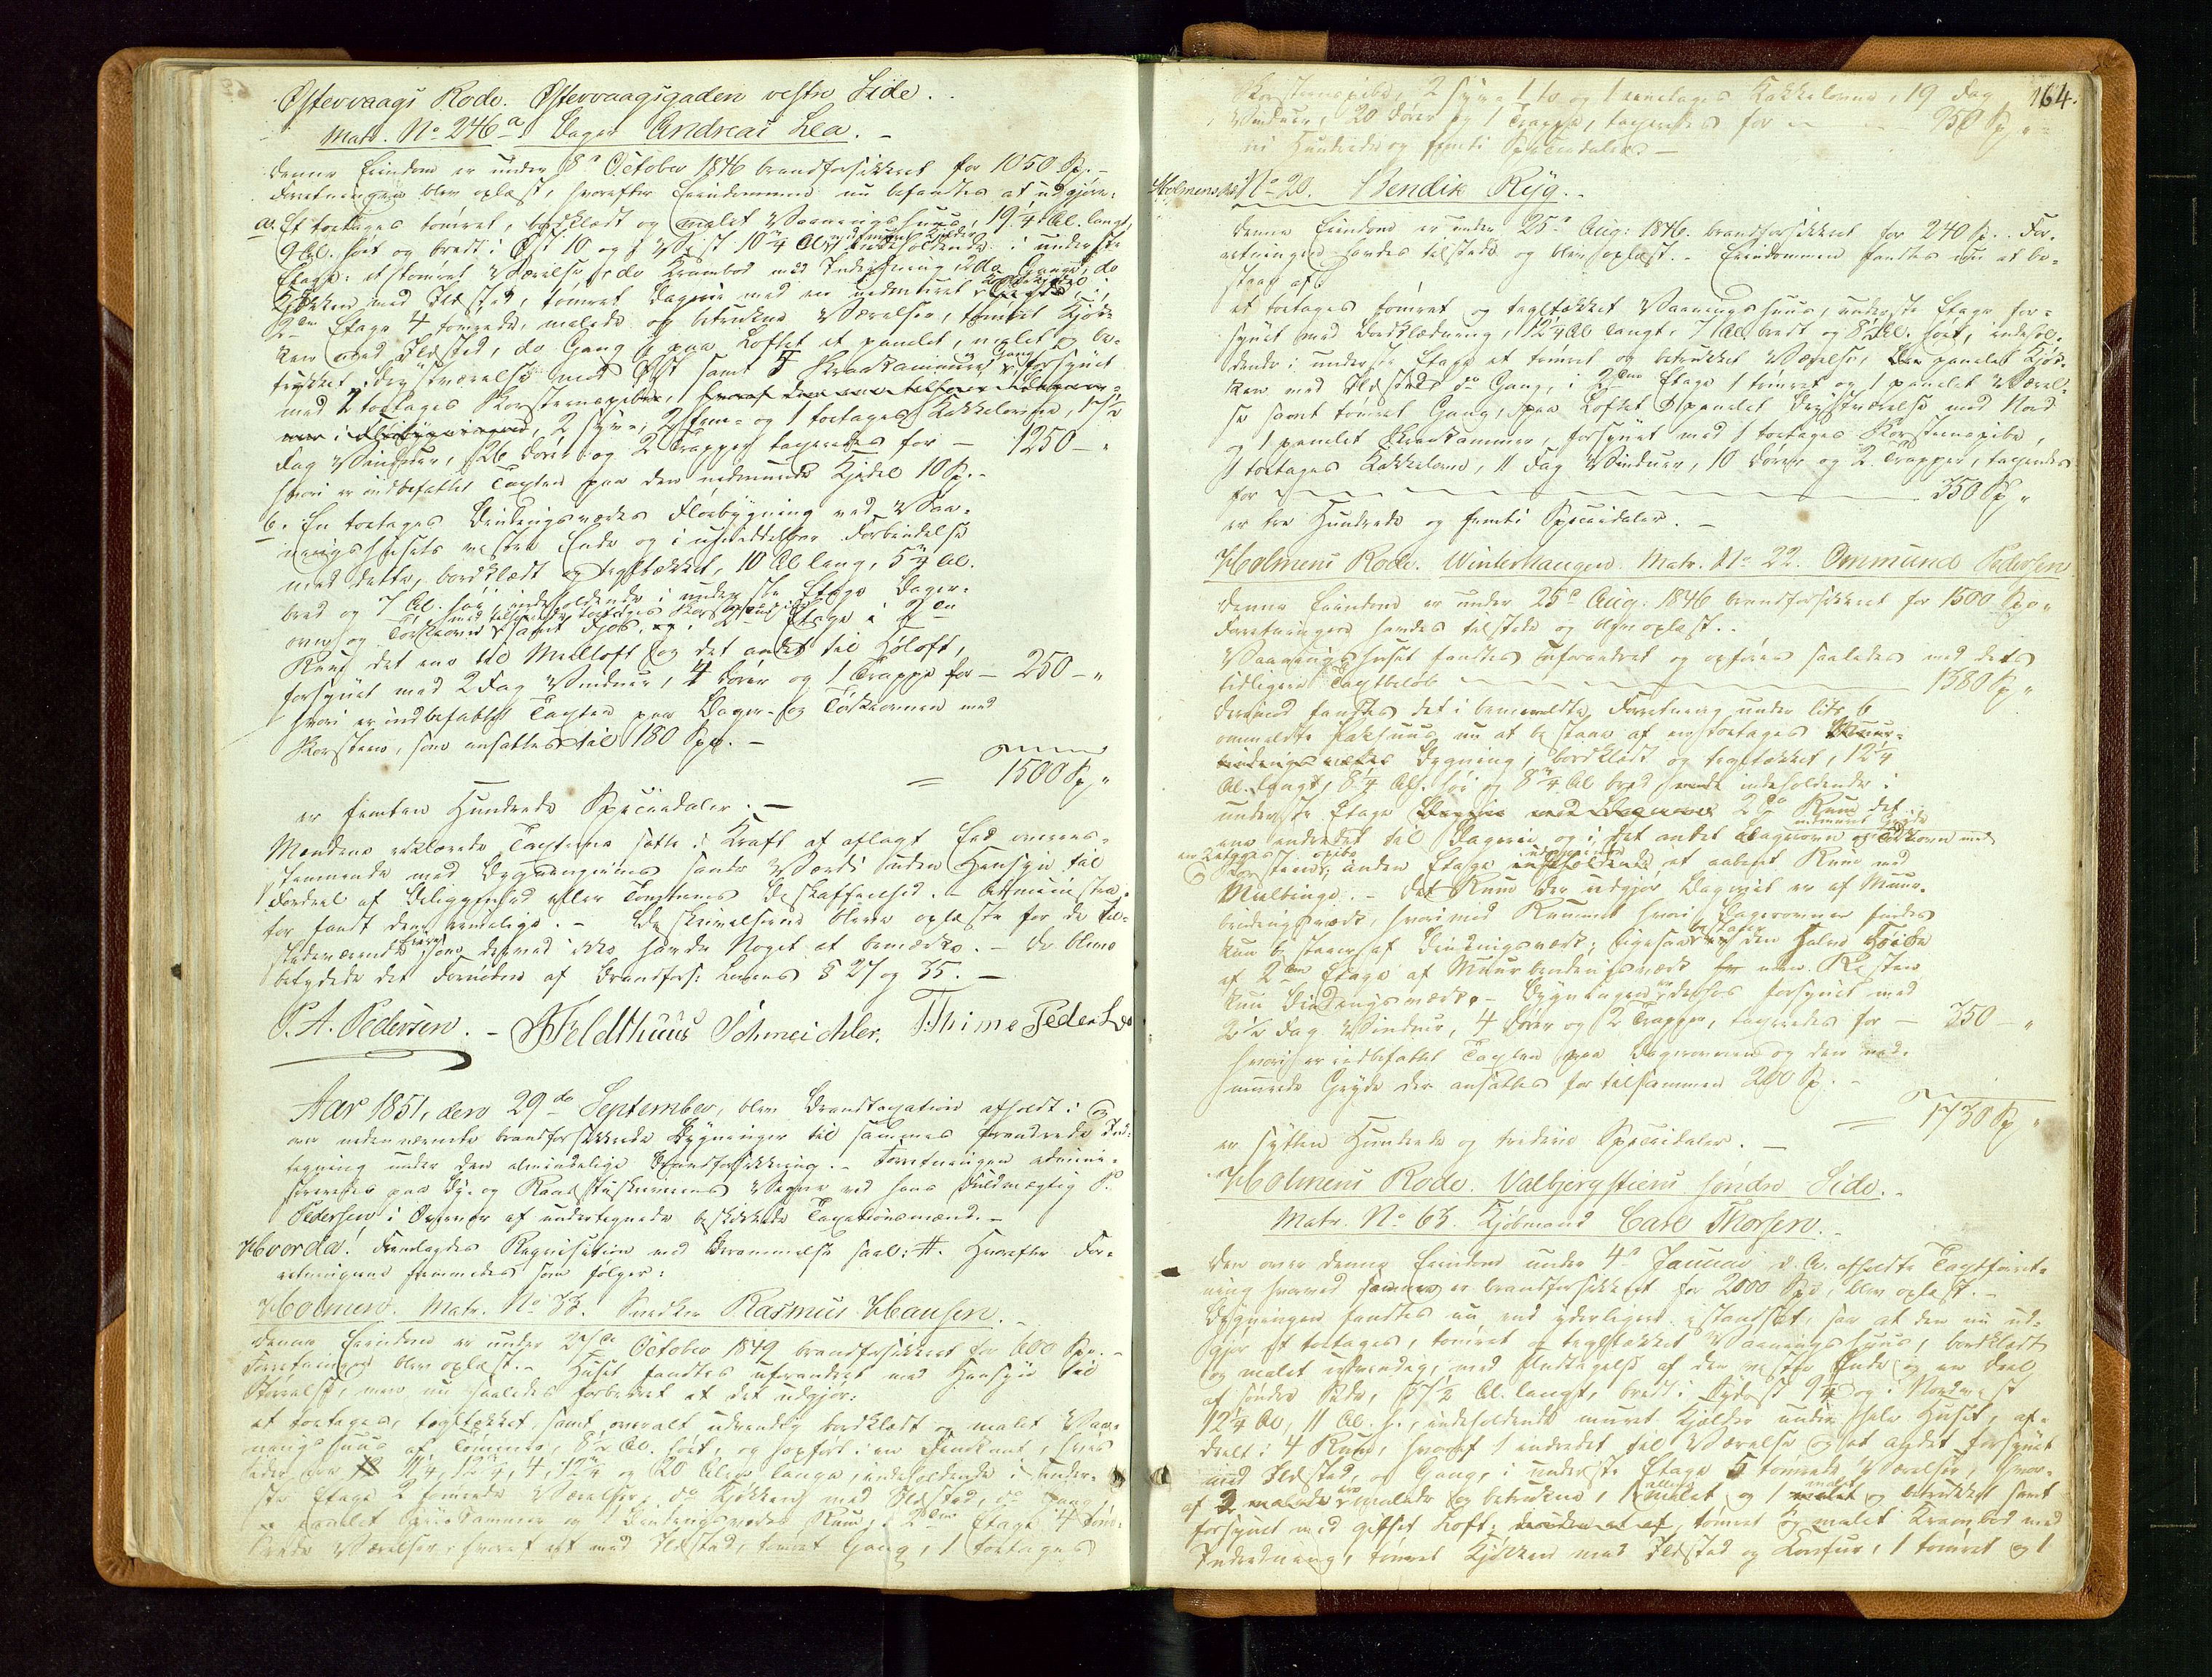 Østervaags Rode. Østervaagsgaden vestre Side.
Matr. No 246 a. Bager Andreas Lea.
Denne Eiendom er under 8de October 1846 brandforsikkret for 1050 Sp.
Forretningen blev oplæst, hvorefter Eiendommen nu befandtes at udgjøre:
a. Et toetages tømret, bordklædt og malet Vaaningshuus, 19 1/4 Al. langt,
9 Al. høit og bredt i Øst 10 og i Vest 10 3/4 Al, indeholdende i underste
Etage: et tømret Værelse, do Krambod med Indredning, do Gang, do
Kjøkken med Ildsted, tømret Bagerie med en nedmuret
2den Etage 4 tømrede, malede og betrukne Værelser, tømret Kjøk-
ken med Ildsted, do Gang, paa Loftet et panelet, malet og be-
trukket Qvistværelse mod Øst samt 5 Skraakammere, forsynet
med 2 toetages Korsteenspiber,
2 syv-, 2 fem- og 1 toetages Kakkelovne, 17 1/2
Fag Vinduer, 26 Døre og 2 Trapper taxeredes for — 1250 — "
hvori er indbefattet Taxten paa den nedmurede Kjedel 10 Sp.
b. En toetages Bindingsværks Fløibygning ved Vaa-
ningshusets vestre Ende og i umiddelbar Forbindelse
med dette, bordklædt og tegltækket, 10 Al lang, 5 3/4 Al.
bred og 7 Al. høi, indeholdende i underste Etage Bager-
ovn og Tørkeovn med tilhørende toetages Korsteenspibe samt Fjøs, og i 2den Etage i 2de
Rum det ene til Meelloft og det andet til Høloft,
forsynet med 2 Fag Vinduer, 4 Døre og 1 Trappe for — 250 — "
hvori er indbefattet Taxten paa Bager- og Tørkeovnen med
Korsteen, som ansattes til 180 Sp. —
= 1500 Sp "
er femten Hundrede Speciedaler. —
Mændene erklærede Taxterne satte i Kraft af aflagt Eed overens-
stemmende med Bygningernes sande Værdi uden Hensyn til
Fordeel af Beliggenhed eller Tomternes Beskaffenhed. — Administra-
tor fandt dem rimelige. — Beskrivelserne bleve oplæste for de til-
stedeværende Eiere som dermed ikke havde Noget at bemærke. — De bleve
betydede det Fornødne af Brandfors: Lovens § 27 og 35. —
P. A. Pedersen. — Feldthuus Schmeichler. T. Thime Peder
Aar 1851, den 29de September, blev Brandtaxation afholdt i og
over nedennævnte brandforsikkrede Bygninger til sammes forandrede Ind-
tegning under den almindelige Brandforsikkring. — Forretningen admini-
streredes paa By- og Raadstuskriverens Vegne ved hans Fuldmægtig P.
Pedersen i Overvær af undertegnede beskikkede Taxationsmænd. —
Hvorda! Fremlagdes Requisition med Berammelse saal: #. Hvorefter For-
retningerne fremmedes som følger:
Holmen. Matr. No 33. Snedker Rasmus Hansen.
Denne Eiendom er under 27de October 1849 brandforsikkret for 600 Sp. —
Forretningen blev oplæst. — Huset fandtes uforandret med Hensyn til
Størrelse, men nu saaledes forbedret at det udgjør:
et toetages, tegltækket, samt overalt udvendig bordklædt og malet Vaa-
ningshuus af Tømmer, 8 1/2 Al. høit, og opført i en Femkant, hvis
Sider ere 11 1/4, 12 3/4, 4, 12 3/4 og 20 Alen lange, indeholdende i under-
ste Etage 2 tømrede Værelser, do Kjøkken med Ildsted, do Gang
og 1 Bindingsværks Rum, i 2den Etage 4 tøm-
rede Værelser, hvoraf et med Ildsted, tømret Gang, 1 toetages
164.
Korsteenspibe, 2 syv-, 1 to og 1 eenetages Kakkelovne, 19 Fag
Vinduer, 20 Døre og 1 Trappe, taxeredes for — 950 Sp "
ni Hundrede og femti Speciedaler. —
Holmens No 20. Bendik Ryg.
Denne Eiendom er under 25de Aug: 1846 brandforsikkret for 240 Sp. For-
retningen havdes tilstede og blev oplæst. — Eiendommen fandtes nu at be-
staae af:
et toetages tømret og tegltækket Vaaningshuus, underste Etage for-
synet med Bordklædning, 12 1/4 Al langt, 7 Al. bredt og 8 1/2 Al. høit, indehol-
dende i underste Etage et tømret og betrukket Værelse, panelet Kjøk-
ken med Ildsted, do Gang, i 2den Etage 1 tømret og 1 panelet Værel-
se samt tømret Gang, paa Loftet panelet Qvistværelse mod Nord
og 1 panelet Skraakammer, forsynet med 1 toetages Korsteenspibe,
1 toetages Kakkelovn, 11 Fag Vinduer, 10 Døre og 2 Trapper, taxeredes
for — 350 Sp "
er tre Hundrede og femti Speciedaler. —
Holmens Rode. Winterhaugen. Matr. No 22. Ommund Pedersen
Denne Eiendom er under 25de Aug: 1846 brandforsikkret for 1500 Spd.
Forretningen havdes tilstede og blev oplæst.
Vaaningshuset fandtes uforandret og opføres saaledes med dets
tidligere Taxtbeløb — 1380 Sp "
Derimod fandtes det i bemeldte Forretning under Litr. b
ommeldte Pakhuus nu at bestaae af en toetages Muur-
bindingsværks Bygning, bordklædt og tegltækket, 12 1/4
Al. langt, 8 1/4 Al. høi og 8 3/4 Al bred, indeholdende i
underste Etage 2de Rum det
ene indredet til Bagerie og i det andet Bagerovn og Tørkeovn med
Korsteen, anden Etage et aabent Rum med
Meelbinge. — Det Rum der udgjør Bageriet er af Muur-
bindingsværk, hvorimod Rummet hvori Bagerovnen findes
kun bestaaer af Bindingsværk; ligesaa bestaaer den halve Høide
af 2den Etage af Muurbindingsværk men Resten
kun Bindingsværk. — Bygningen er derhos forsynet med
2 1/2 Fag Vinduer, 4 Døre og 2 Trapper, taxeredes for — 350 — "
hvori er indbefattet Taxten paa Bagerovnen og den ned-
murede Gryde der ansattes for tilsammen 200 Sp. —
= 1730 Sp "
er sytten Hundrede og tredive Speciedaler. —
Holmens Rode. Valbjergstiens søndre Side.
Matr. No 63. Kjøbmand Carl Thorsen.
Den over denne Eiendom under 4de Januar d. A. afholdte Taxtforret-
ning hvorved samme er brandforsikkret for 2000 Spd, blev oplæst. —
Bygningen fandtes nu end yderligere istandsat, saa at den nu ud-
gjør et toetages, tømret og tegltækket Vaaningshuus, bordklædt
og malet udvendig, med Undtagelse af den vestre Ende og en Deel
af søndre Side, 37 1/2 Al. langt, bredt i Sydost 9 1/4 og i Nordvest
12 1/4 Al, 11 Al. h., indeholdende muret Kjælder under hele Huset, af-
deelt i 4 Rum, hvoraf 1 indredet til Værelse og et andet forsynet
med Ildsted, og Gang, i underste Etage 5 tømrede Værelser, hvor-
af malede og betrukne, 1 malet og 1 og betrukket samt
forsynet med gibset Loft, tømret og malet Krambod med
Indredning, tømret Kjøkken med Ildsted og Komfur, 1 tømret og 1